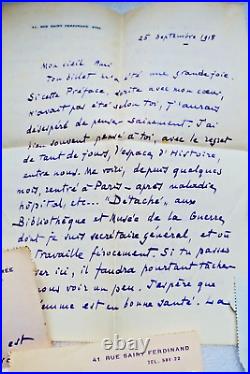 41, RUE SAINT FERDINAND, XVIIe
25 septembre 1918
Mon vieil Ami
Ton billet m'a été une grande joie.
Si cette Préface, écrite avec mon cœur,
n'avait pas été selon toi, j'aurais
désespéré de penser sainement. J'ai
bien souvent pensé à toi, avec le regret
de tant de jours, d'espace, d'Histoire,
entre nous. Me voici, depuis quelques
mois, rentré à Paris – après maladie,
hôpital, etc... "Détaché" aux
Bibliothèque et Musée de la Guerre,
dont je suis secrétaire général, et où
travaille férocement. Si tu passes
ici, il faudra pourtant tâcher
nous voir un peu. J'espère que
femme est en bonne santé. La
41 RUE SAINT FERDINAND
TEL.